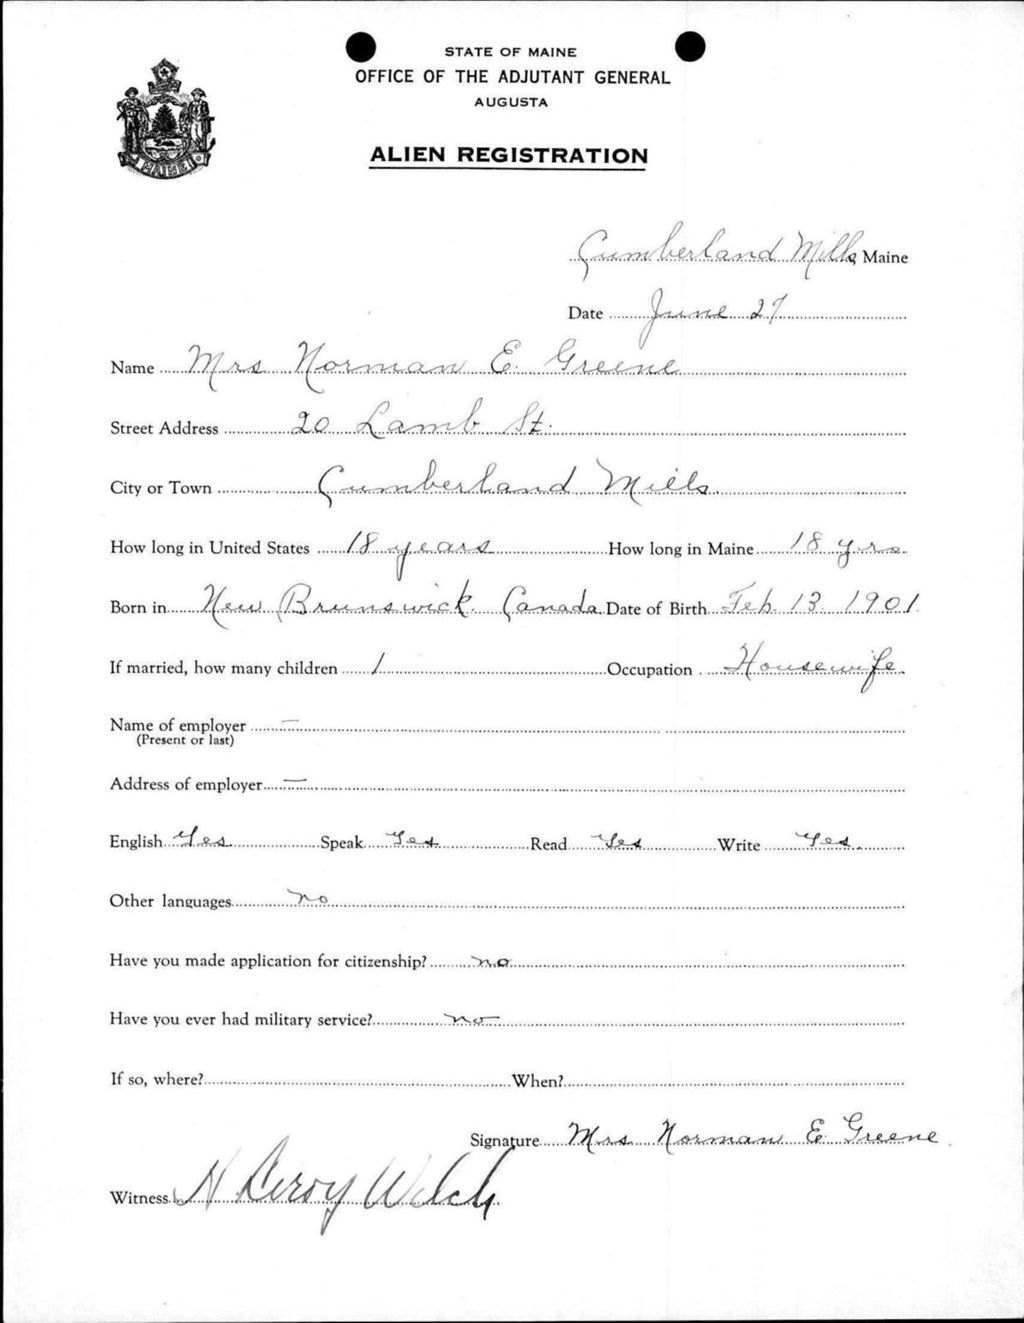 STATE OF MAINE
OFFICE OF THE ADJUTANT GENERAL
AUGUSTA
ALIEN REGISTRATION
MAINE
Cumberland Mills, Maine
Date June 27
Name Mrs Norman E. Greene
Street Address 20 Lamb St.
City or Town Cumberland Mills
How long in United States 18 years How long in Maine 18 yrs
Born in New Brunswick Canada Date of Birth Feb. 13 1901
If married, how many children 1 Occupation Housewife
Name of employer —
(Present or last)
Address of employer —
English Yes Speak Yes Read Yes Write Yes
Other languages no
Have you made application for citizenship? no
Have you ever had military service? no
If so, where? When?
Signature Mrs. Norman E. Greene
Witness H Leroy Welch